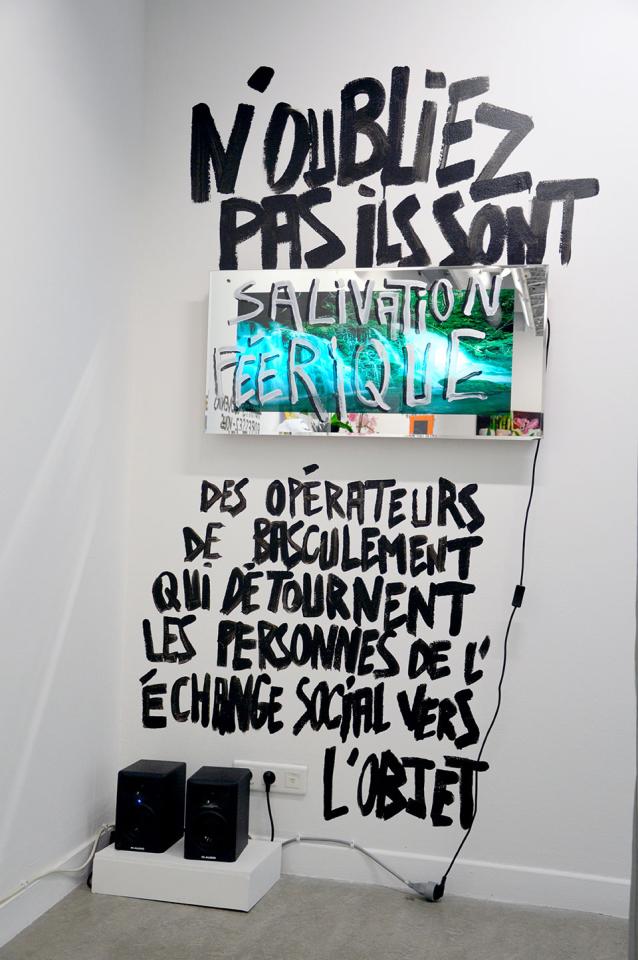 N'OUBLiEZ
PAS iLS SONT
SALiVATiON
FÉÉRiQUE
DES OPÉRATEURS
DE BASCULEMENT
QUi DÉTOURNENT
LES PERSONNES DE L'
ÉCHANGE SOCiAL VERS
L'OBJET
M-AUDIO
M-AUDIO